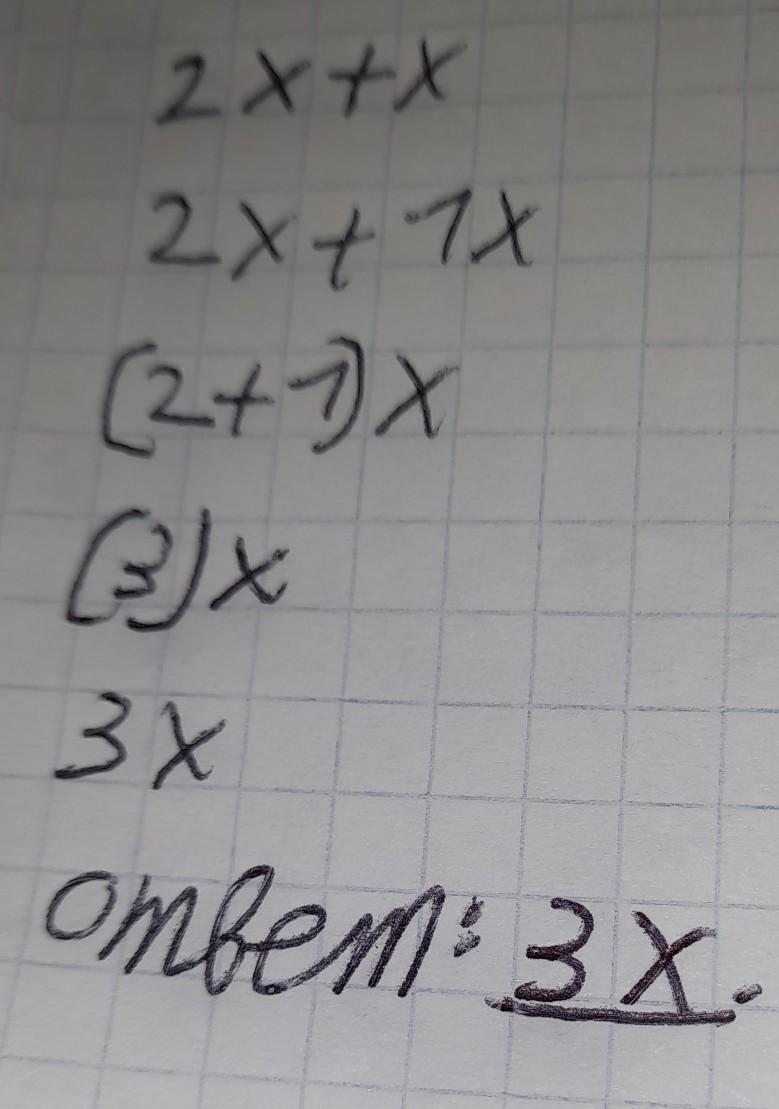 2x+x
2x+1x
(2+1)x
(3)x
3x
ответ: 3x.